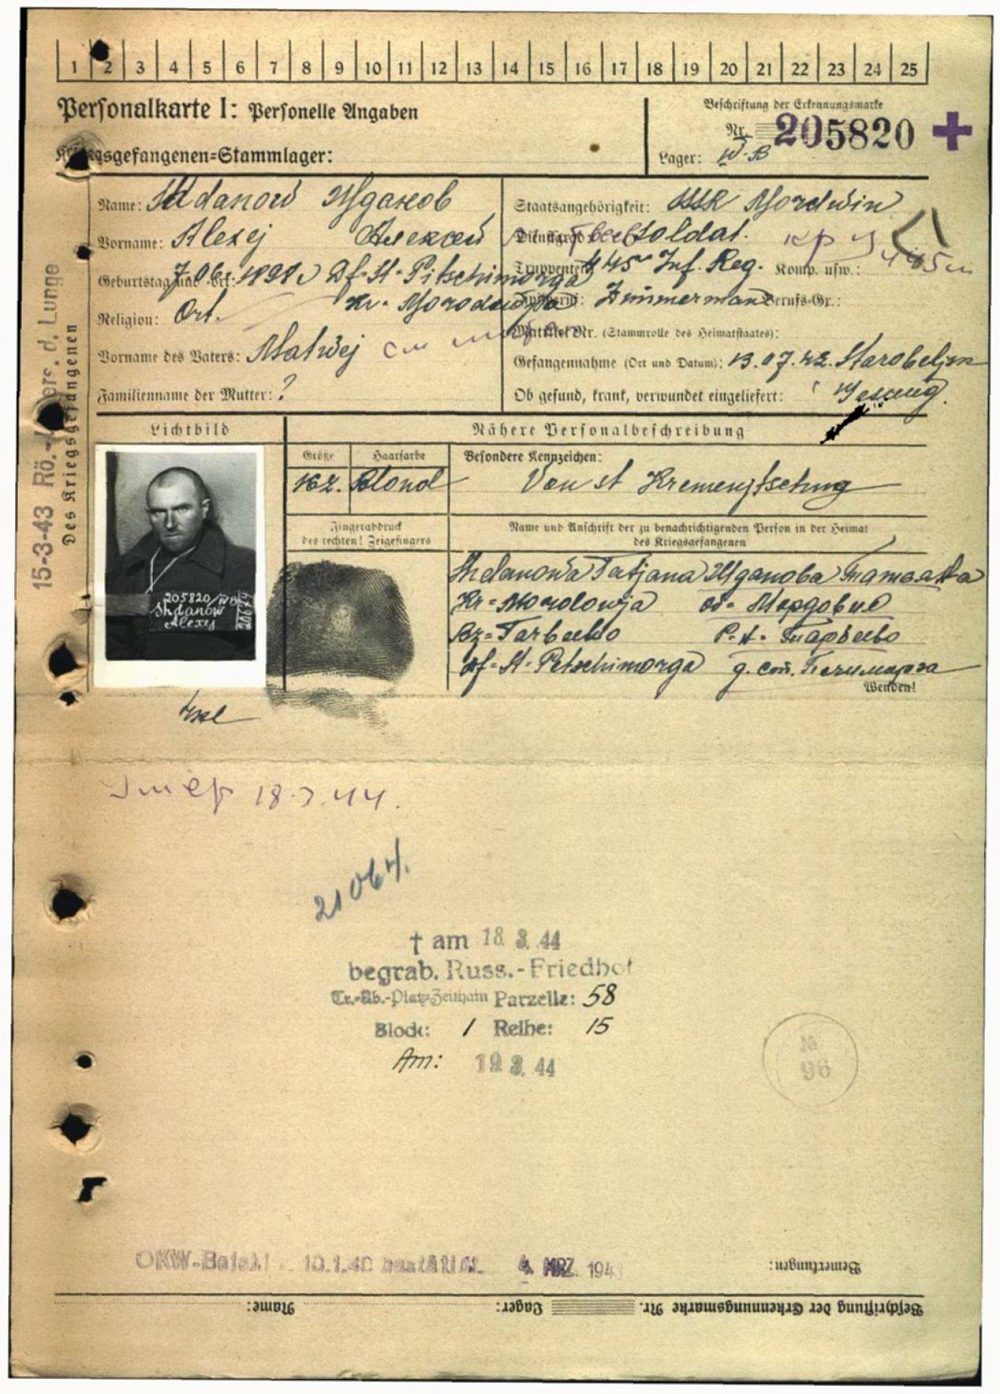 1 2 3 4 5 6 7 8 9 10 11 12 13 14 15 16 17 18 19 20 21 22 23 24 25
Personalkarte I: Personelle Angaben
Beschriftung der Erkennungsmarke
Nr. 205820 +
Kriegsgefangenen=Stammlager:
Lager: IV-B
Name: Shdanow Жданов
Staatsangehörigkeit: SSR Mordwin
Vorname: Alexej Алексей
Dienstgrad: Soldat.
Geburtstag und -Ort: 7.06. Df-St-Pitschimorga
Truppenteil: 445 Inf. Reg. Komp. usw.:
Kr-Mordowija
Zimmermann Berufs-Gr.:
Religion: Ort.
Matrikel Nr. (Stammrolle des Heimatstaates):
Vorname des Vaters: Matwej
Gefangennahme (Ort und Datum): 13.07.42. Starobelsk
Familienname der Mutter: ?
Ob gesund, krank, verwundet eingeliefert: Gesund.
Lichtbild
Nähere Personalbeschreibung
Größe
Haarfarbe
Besondere Kennzeichen:
162. Blond
Von St Krementschug
Fingerabdruck
des rechten! Zeigefingers
Name und Anschrift der zu benachrichtigenden Person in der Heimat
des Kriegsgefangenen
Shdanowa Tatjana Жданова Татьяна
Kr-Mordowija об-Мордовие
Bz-Tarbeewo Р.н. Тарбеево
Df-St-Petschimorga д. ст. Печиморга
Wenden!
205820/IVB
Shdanow
Alexej
15-3-43 Rö.- d. Lunge
Des Kriegsgefangenen
18.3.44.
21064.
† am 18. 3. 44
begrab. Russ.-Friedhof
Tr.-Üb.-Platz Zeithain Parzelle: 58
Block: 1 Reihe: 15
Am: 19 3. 44
№
96
OKW-Befehl 10.1.40 4. MRZ. 194
Bemerkungen:
Beschriftung der Erkennungsmarke Nr. Lager: Name: